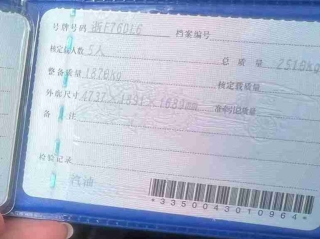 号牌号码 浙F760L6 档案编号
核定载人数 5人 总质量 2510kg
整备质量 1870kg 核定载质量
外廓尺寸 4737×1891×1689mm 准牵引总质量
备注
检验记录
汽油
*3350043010964*